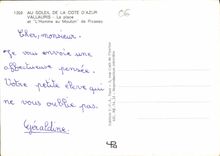 1309 AU SOLEIL DE LA COTE D'AZUR
VALLAURIS - La place
et "L'Homme au Mouton" de Picasso
Cher, monsieur.
Je vous envoie une
affectueuse pensée.
Votre petite élève qui
ne vous oublie pas.
Géraldine.